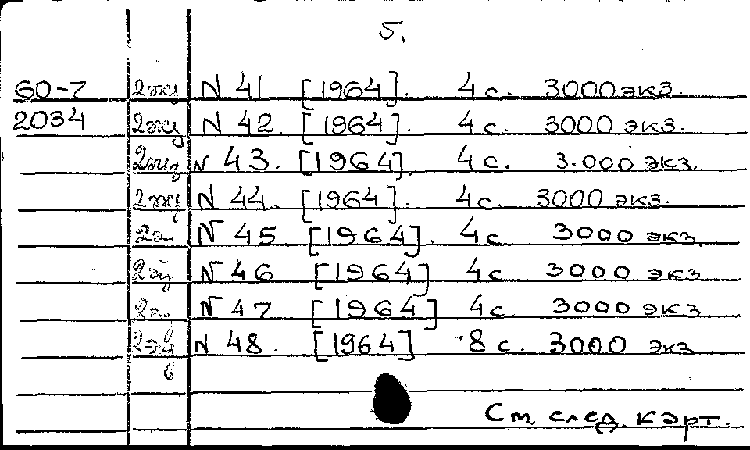 5.
60-7 N 41 [1964]. 4 с. 3000 экз.
2034 N 42. [1964]. 4 с. 3000 экз.
N 43. [1964]. 4 с. 3.000 экз.
N 44. [1964]. 4 с. 3000 экз.
N 45 [1964]. 4 с 3000 экз.
N 46 [1964] 4 с 3000 экз
N 47 [1964] 4 с 3000 экз
N 48. [1964] 8 с. 3000 экз
См след. карт.